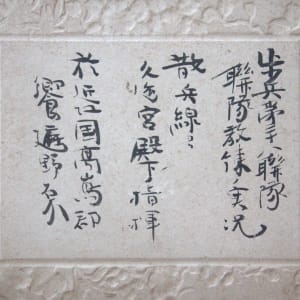 歩兵第卅八聯隊
聯隊教練ノ実况
散兵線ニ
久邇宮殿下ノ指揮
於近江国高嶌郡
饗庭野